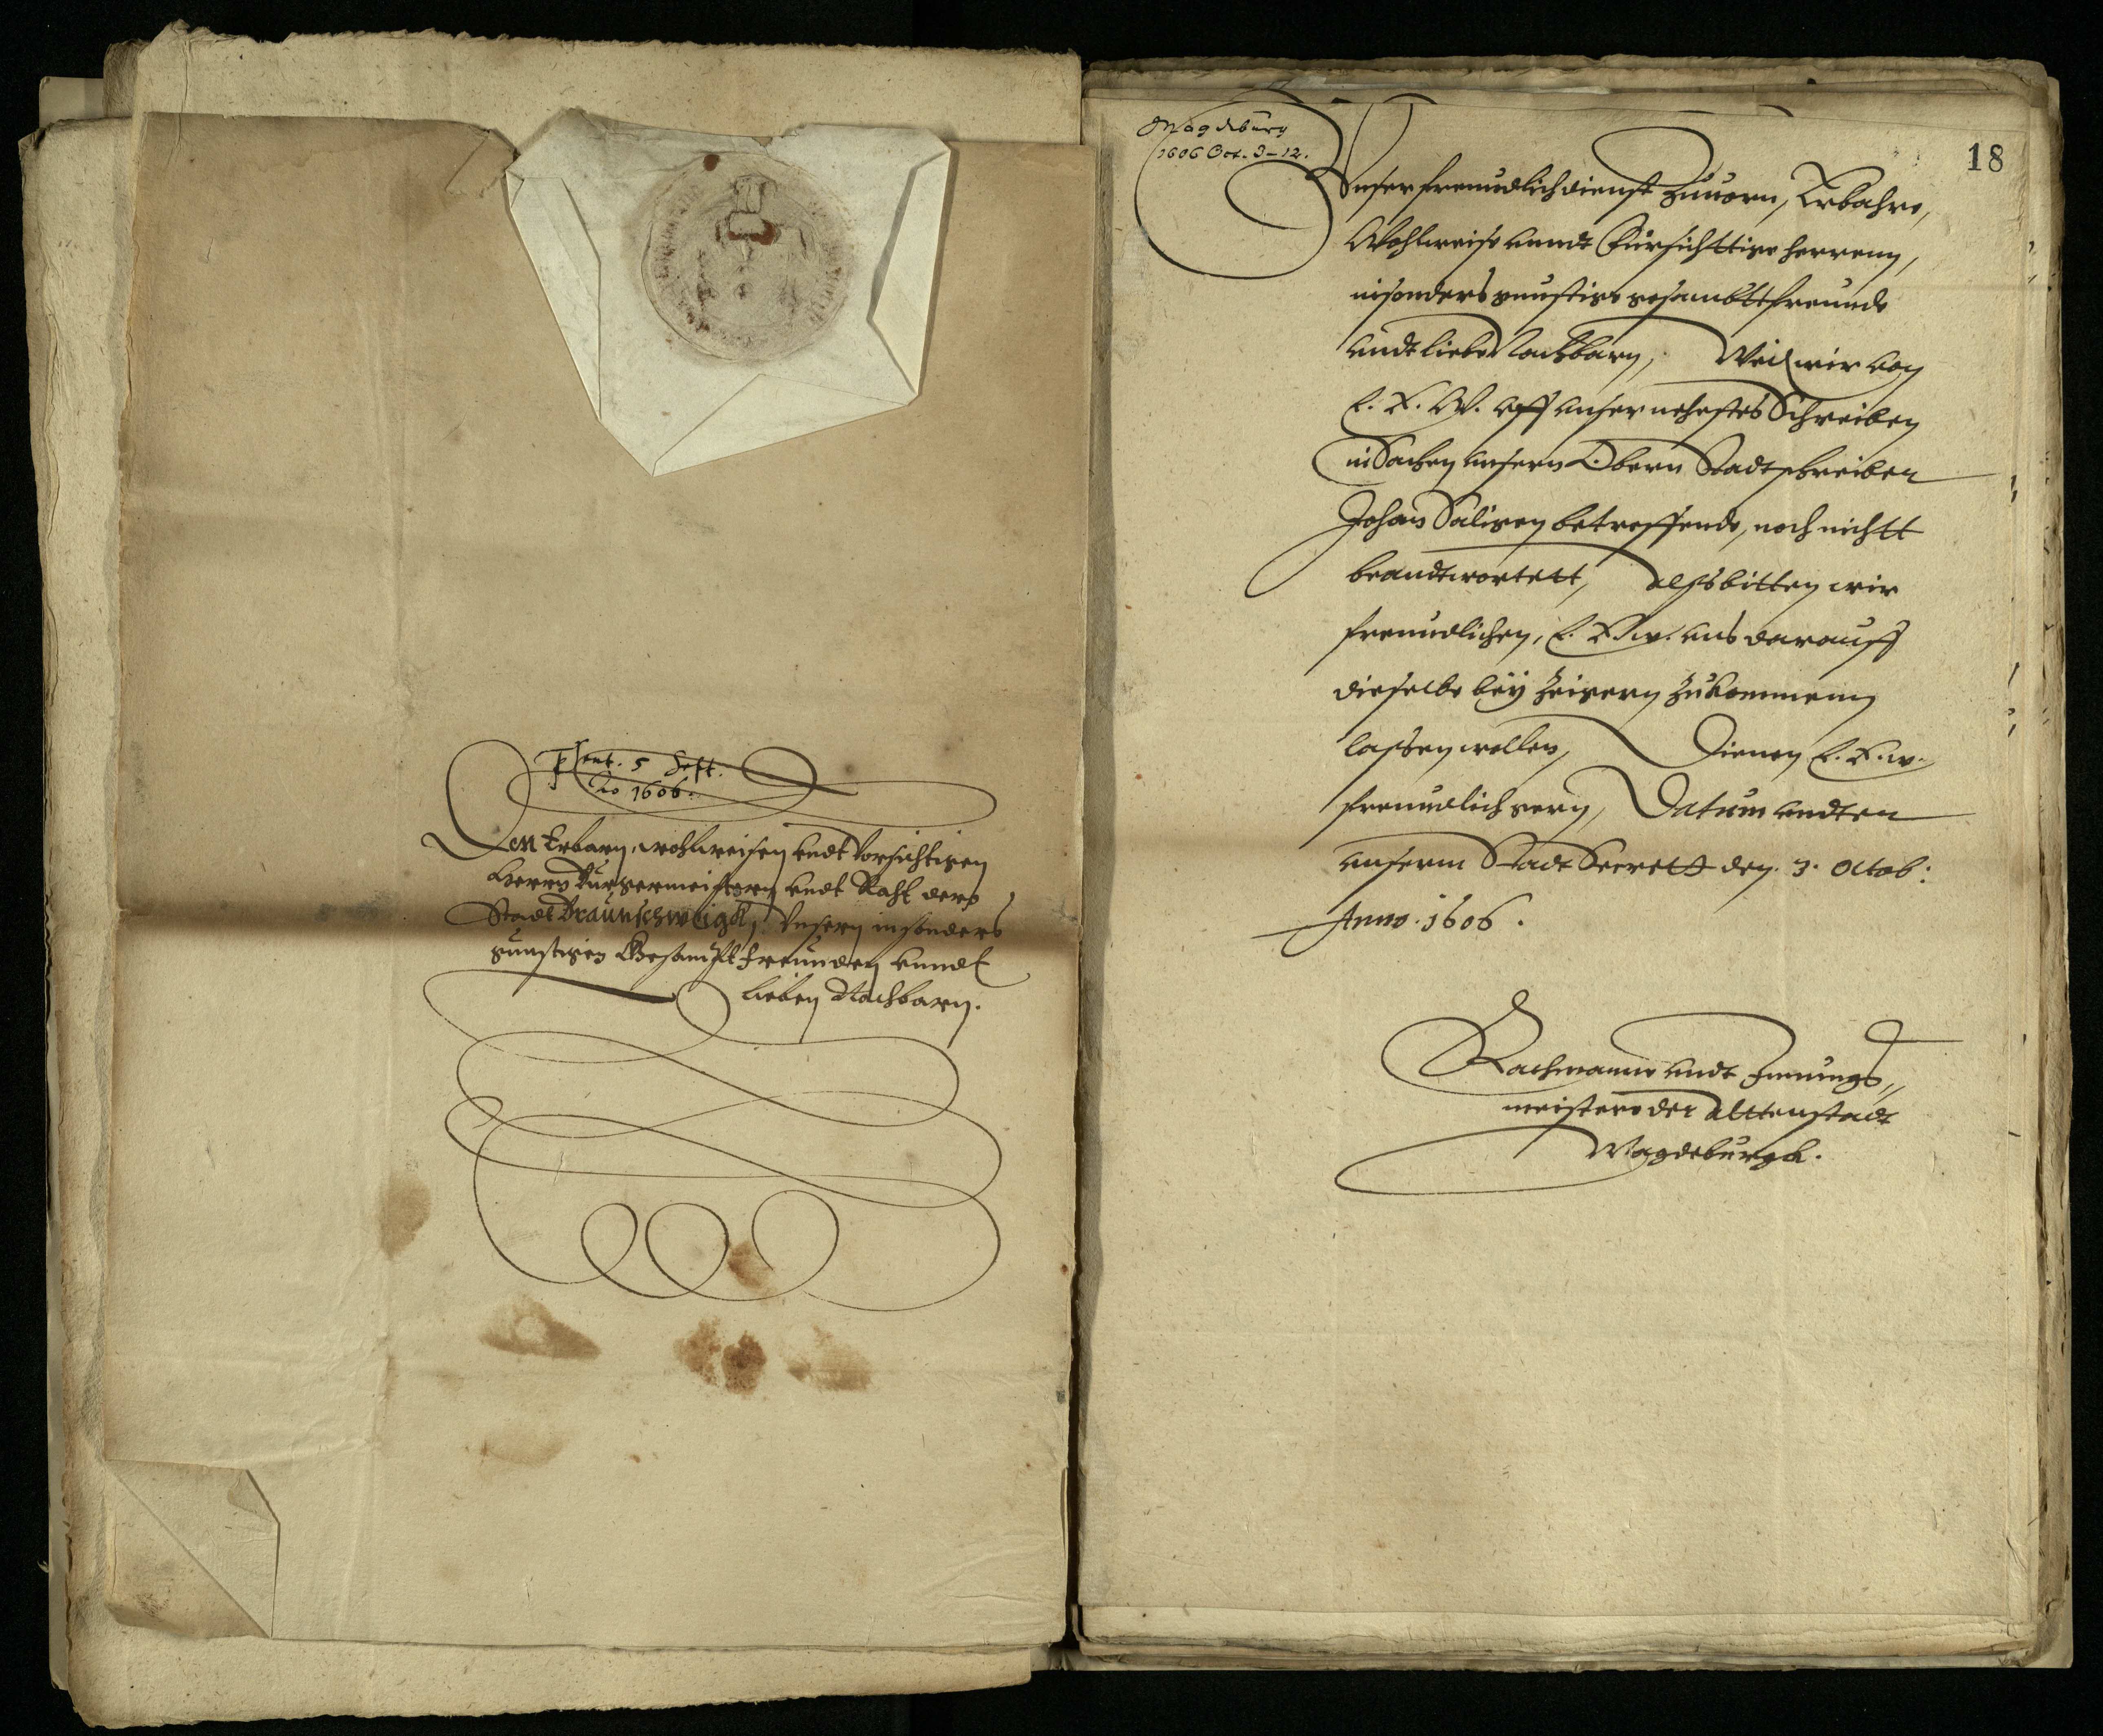 Pſent. 5 Sept.
Ao 1606.
Den Erbarn, wohlweisen undt Vorsichtigen
Herrn Burgermeistern undt Raht der
Stadt Braunschweigk, Unsern insonders
gunstigen Gesampt freunden unndt
lieben Nachbarn.
Magdeburg
1606 Oct. 3-12.
18
Unser freundlich dienst zuuorn, Erbahre,
Wohlweise unndt Fursichttige herrenn,
insonders gunstige gesambtte freunde
undt liebe Nachbarn, Weil wir von
E. E. W. uff unser nehestes Schreiben
in Sachen unsern Obern Stadtschreiber
Johan Saligen betreffende, noch nichtt
beandtwortett, alß bitten wir
freundlichen, E. E. w. uns darauff
dieselbe bey Zeigern zukommenn
lassen wollen, Dienen E. E. w.
freundlich gern, Datum undter
unserm Stadt Secrett den. 3. Octob:
Anno. 1606.
Rathmanne undt Innungs„
meistere der Alttenstadt
Magdeburgk.